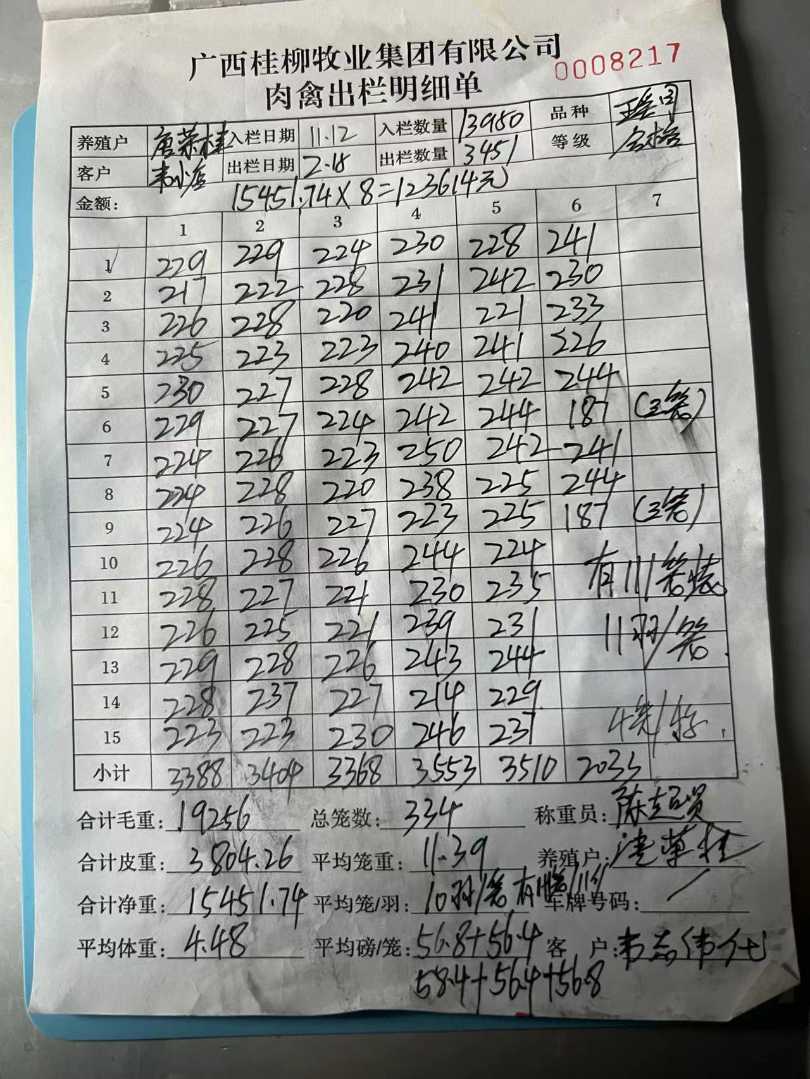 广西桂柳牧业集团有限公司
0008217
肉禽出栏明细单
养殖户 唐荣桂 入栏日期 11.12 入栏数量 13980 品种
客户 出栏日期 2.18 出栏数量 3451 等级 合格
金额: 15451.74×8=123614元
1 2 3 4 5 6 7
1 229 229 224 230 228 241
2 217 222 228 231 242 230
3 226 228 220 241 221 233
4 225 223 223 240 241 226
5 230 227 228 242 242 244
6 229 227 224 242 244 187 (3笼)
7 224 226 223 250 242 241
8 224 228 220 238 225 244
9 224 226 227 223 225 187 (3笼)
10 226 228 226 244 224
11 228 227 221 230 235 有111笼装
12 226 225 221 239 231 11羽/笼.
13 229 228 226 243 244
14 228 237 227 214 229
15 223 223 230 246 237 4笼/
小计 3388 3404 3368 3553 3510 2033
合计毛重: 19256 总笼数: 334 称重员:
合计皮重: 3804.26 平均笼重: 11.39 养殖户:
合计净重: 15451.74 平均笼/羽: 10羽/笼 有111笼/11羽 车牌号码: /
平均体重: 4.48 平均磅/笼: 56.8+56.4 客 户:
58.4+56.4+56.8